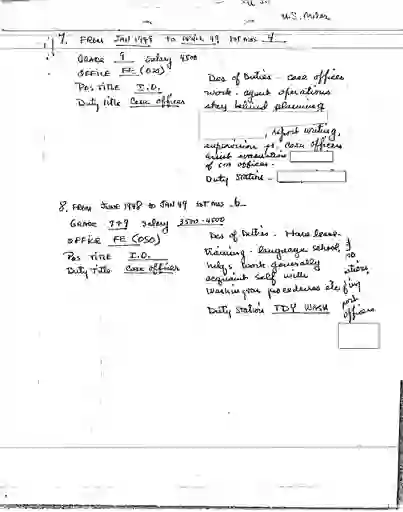 7. FROM JAN 1948 to 49 TOT MOS 4
GRADE 9 Salary 4500
OFFICE FE (OSO)
Pos TITLE I.O.
Duty Title Case officer
Des of Duties - case officer
work - agent operations
stay behind planning
, report writing,
supervision of case officers
officer.
Duty Station -
8. FROM JUNE 1948 to JAN 49 TOT MOS 6
GRADE 7+9 Salary 3500-4500
OFFICE FE (OSO)
Pos TITLE I.O.
Duty Title Case officer
Des of Duties -
training - language school,
hdqs work generally
acquaint self with
Washington procedures etc
Duty Station TDY WASH